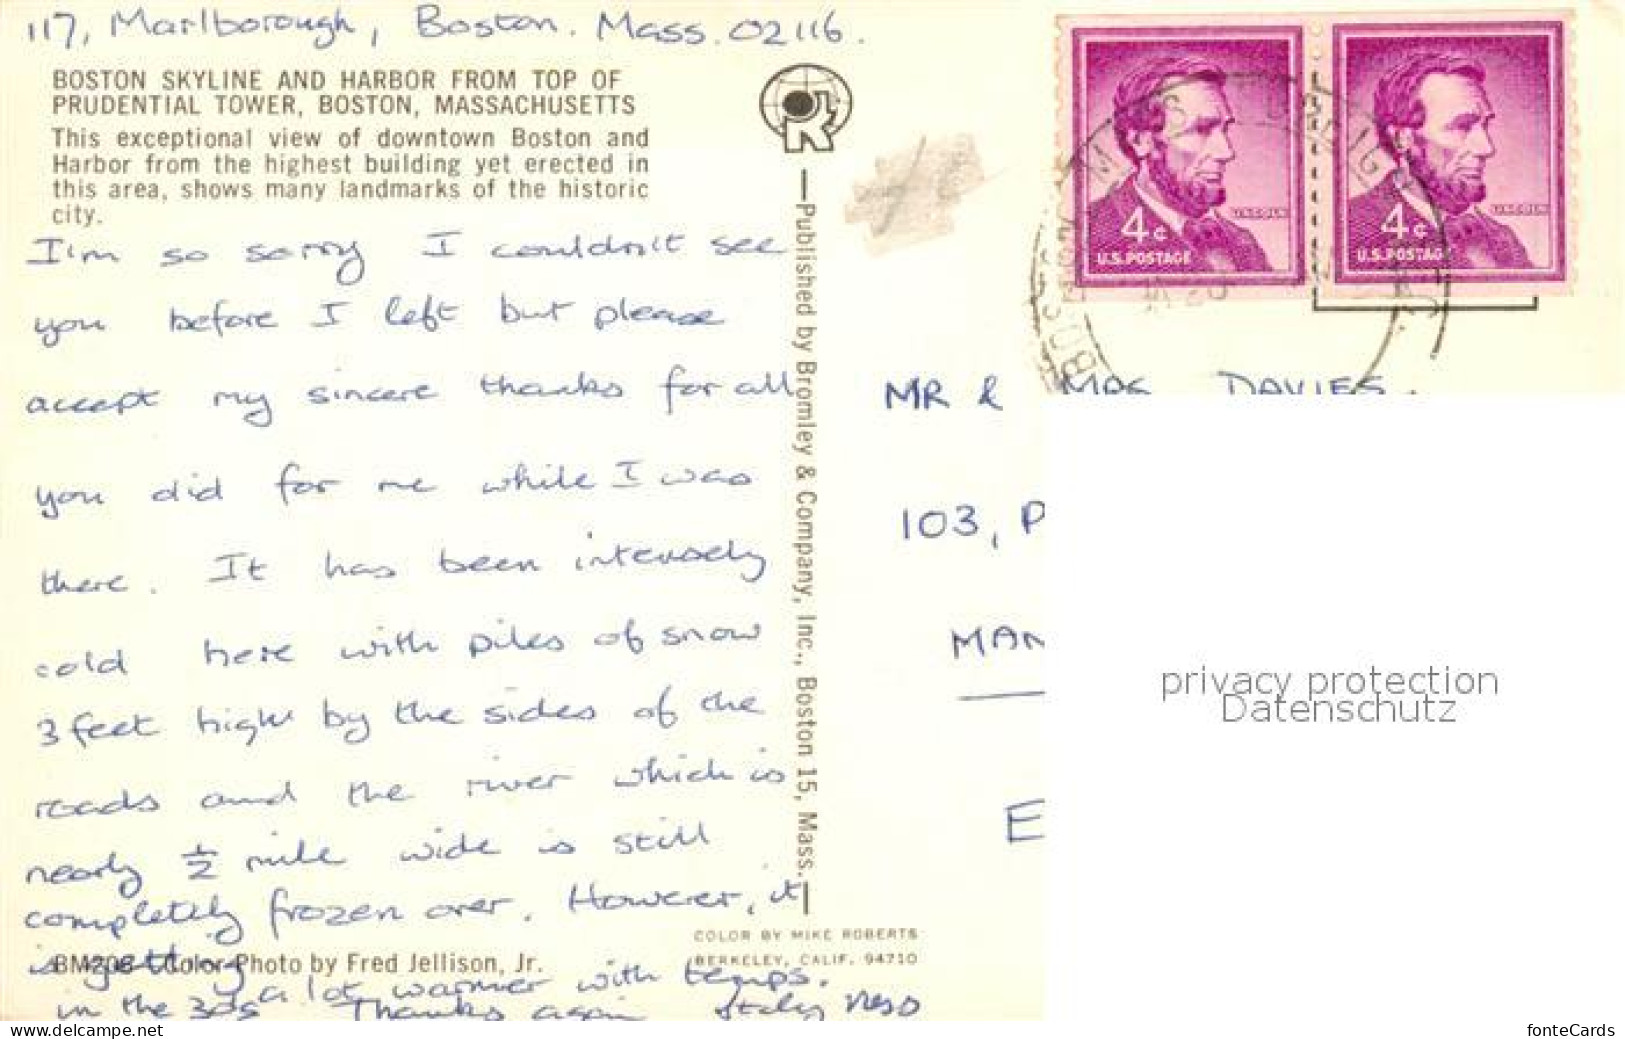 117, Marlborough, Boston. Mass. 02116.
BOSTON SKYLINE AND HARBOR FROM TOP OF
PRUDENTIAL TOWER, BOSTON, MASSACHUSETTS
This exceptional view of downtown Boston and
Harbor from the highest building yet erected in
this area, shows many landmarks of the historic
city.
I'm so sorry I couldn't see
you before I left but please
accept my sincere thanks for all
you did for me while I was
there. It has been intensely
cold here with piles of snow
3 feet high by the sides of the
roads and the river which is
nearly ½ mile wide is still
completely frozen over. However, it
is getting
BM206—Color Photo by Fred Jellison, Jr.
a lot warmer with temps.
in the 30s Thanks again
—Published by Bromley & Company, Inc., Boston 15, Mass.—
COLOR BY MIKE ROBERTS
BERKELEY, CALIF. 94710
4¢
LINCOLN
U.S. POSTAGE
4¢
LINCOLN
U.S. POSTAGE
MR & MRS DAVIES.
103, P
MAN
E
privacy protection
Datenschutz
www.delcampe.net
fonteCards